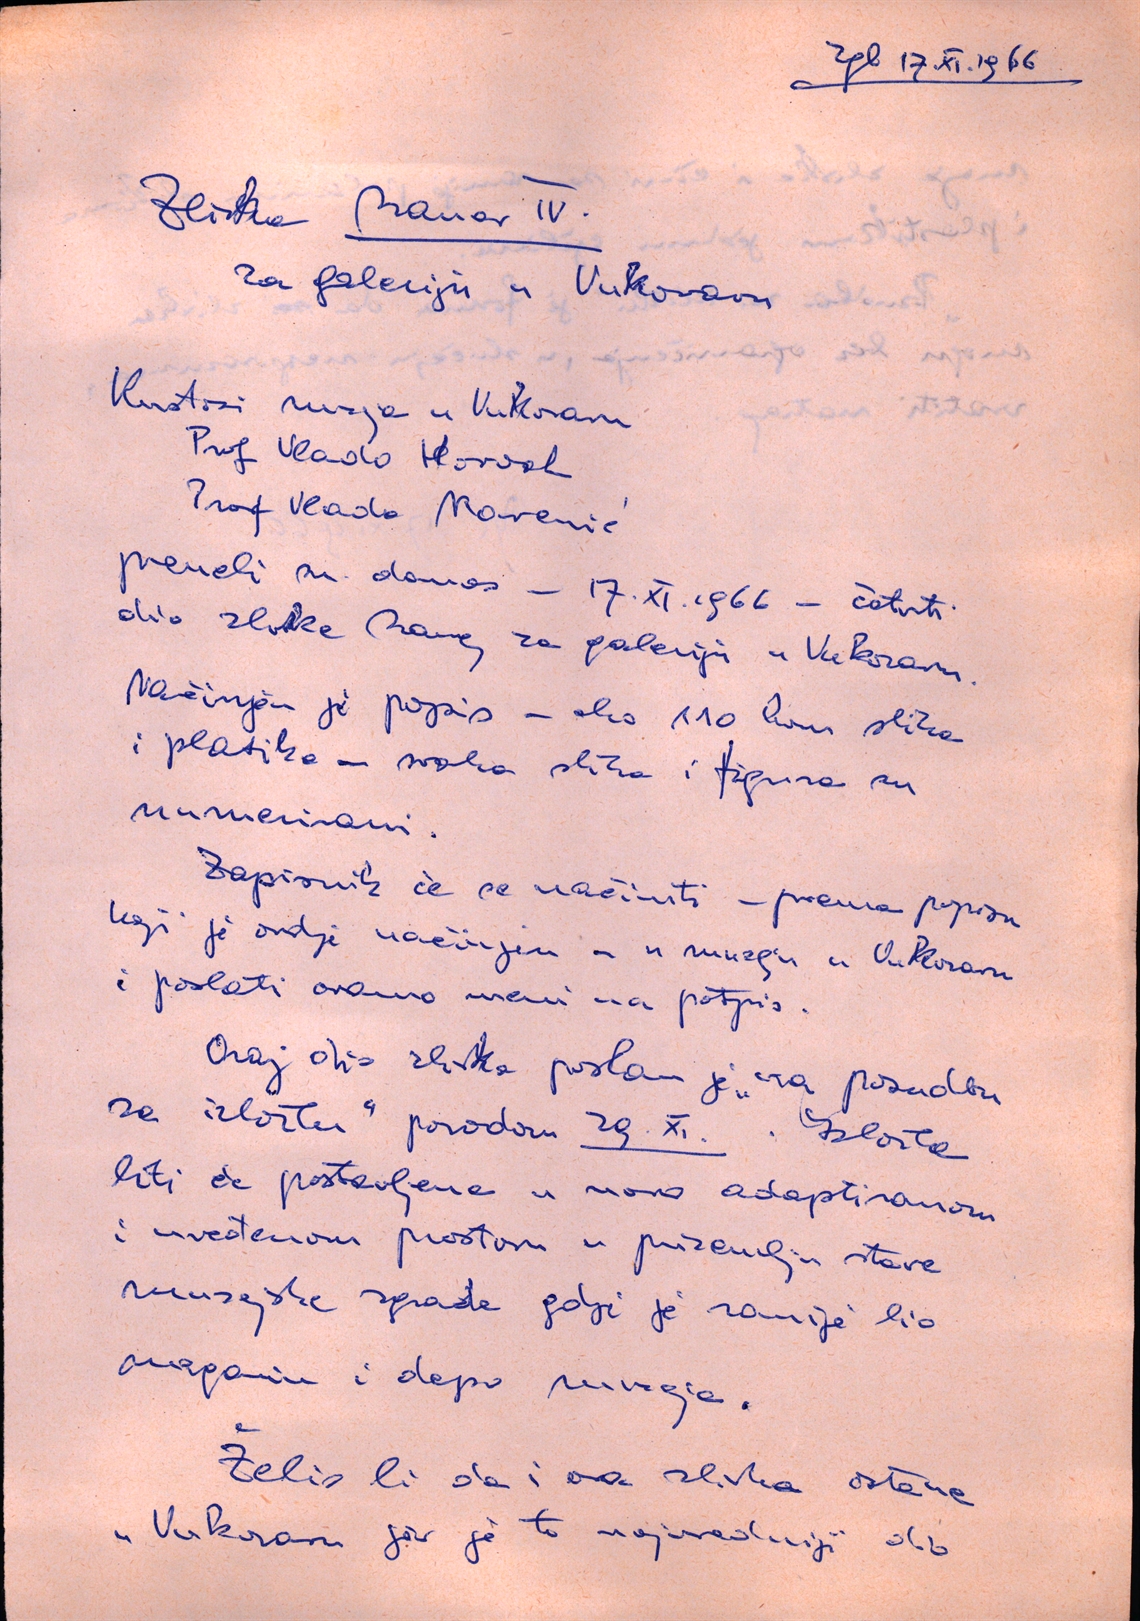 Zgb 17.XI.1966
Zbirka Bauer IV.
za galeriju u Vukovaru
Kustosi muzeja u Vukovaru
Prof Vlado Horvat
Prof Vlado
preuzeli su danas – 17.XI.1966 – četvrti
dio zbirke Bauer za galeriju u Vukovaru.
Načinjen je popis – oko 110 kom slika
i plastika – svaka slika i figura su
numerirani.
Zapisnik će se načiniti – prema popisu
koji je ovdje načinjen – u muzeju u Vukovaru
i poslati ovamo meni na potpis.
Ovaj dio zbirke poslan je „na posudbu
za izložbu“ povodom 29.XI. Izložba
biti će postavljena u novo adaptiranom
i uređenom prostoru u prizemlju stare
muzejske zgrade gdje je ranije bio
magazin i depo muzeja.
Želio bi da i ova zbirka ostane
u Vukovaru jer je to najvredniji dio